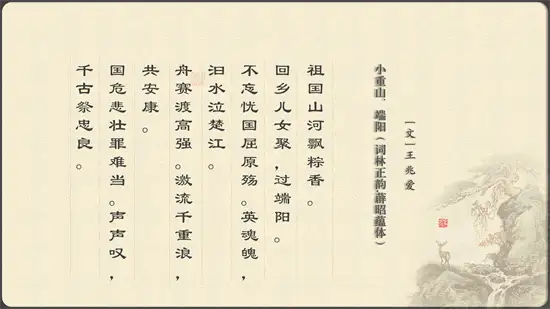 小重山·端阳（词林正韵·薛昭蕴体）
［文］王兆爱
祖国山河飘粽香。
回乡儿女聚，过端阳。
不忘忧国屈原殇。英魂魄，
汨水泣楚江。
舟赛渡高强。激流千重浪，
共安康。
国危悲壮罪难当。声声叹，
千古祭忠良。